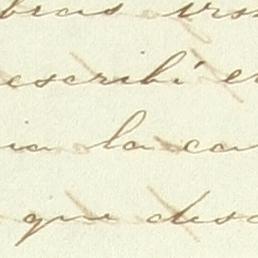 bras vro
escribí en
ia la ca
que desc